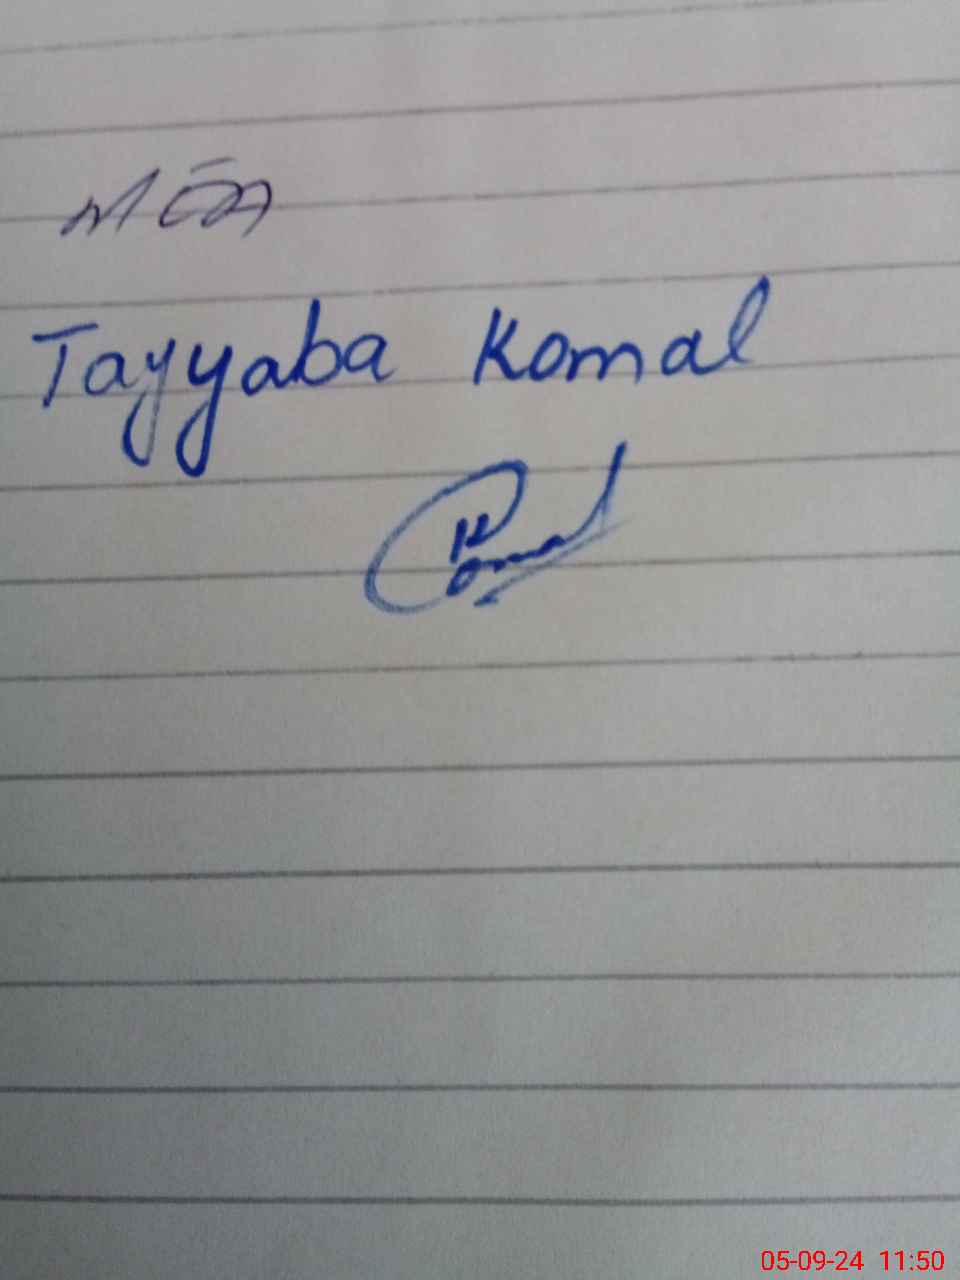 Tayyaba Komal
Komal
05-09-24 11:50